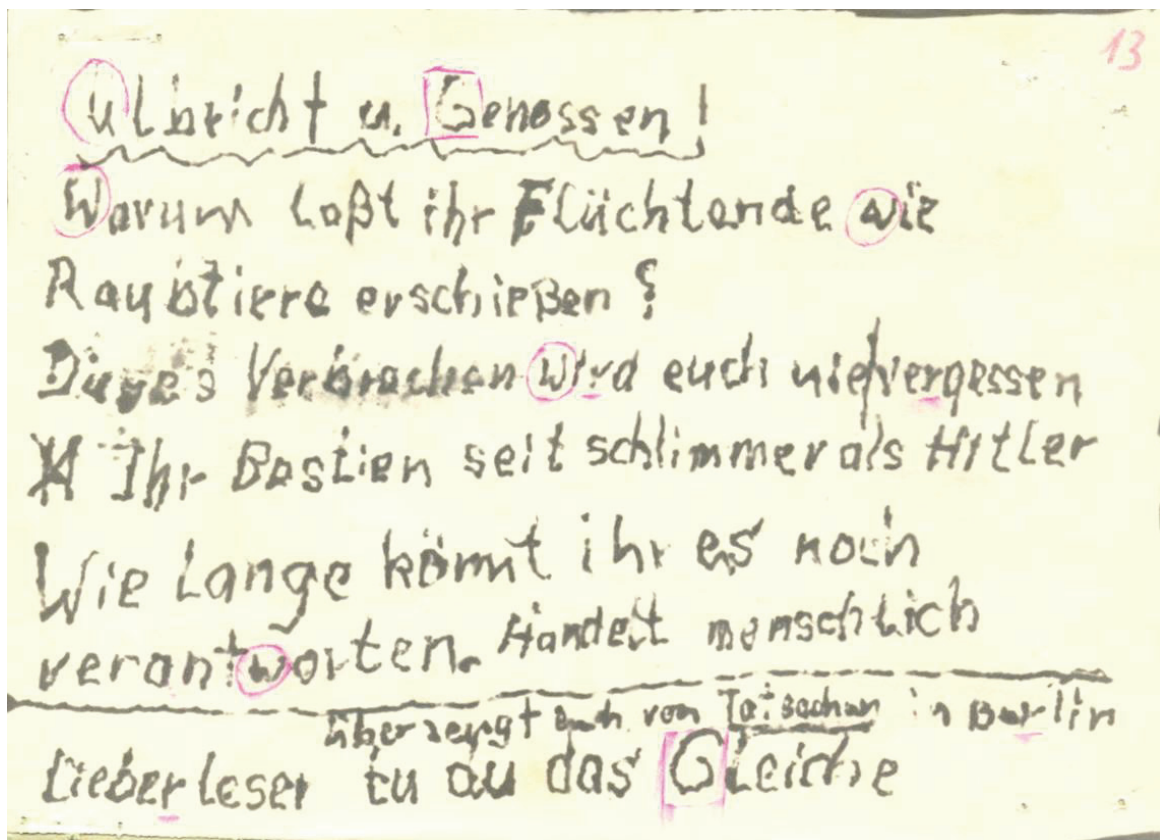 13
Ulbricht u. Genossen!
Warum laßt ihr Flüchtende wie
Raubtiere erschießen?
Dieses Verbrechen wird euch nie vergessen
Ihr Bestien seit schlimmer als Hitler
Wie Lange könnt ihr es noch
verantworten. Handelt menschlich
überzeugt euch von Tatsachen in Berlin
Lieber leser tu du das Gleiche